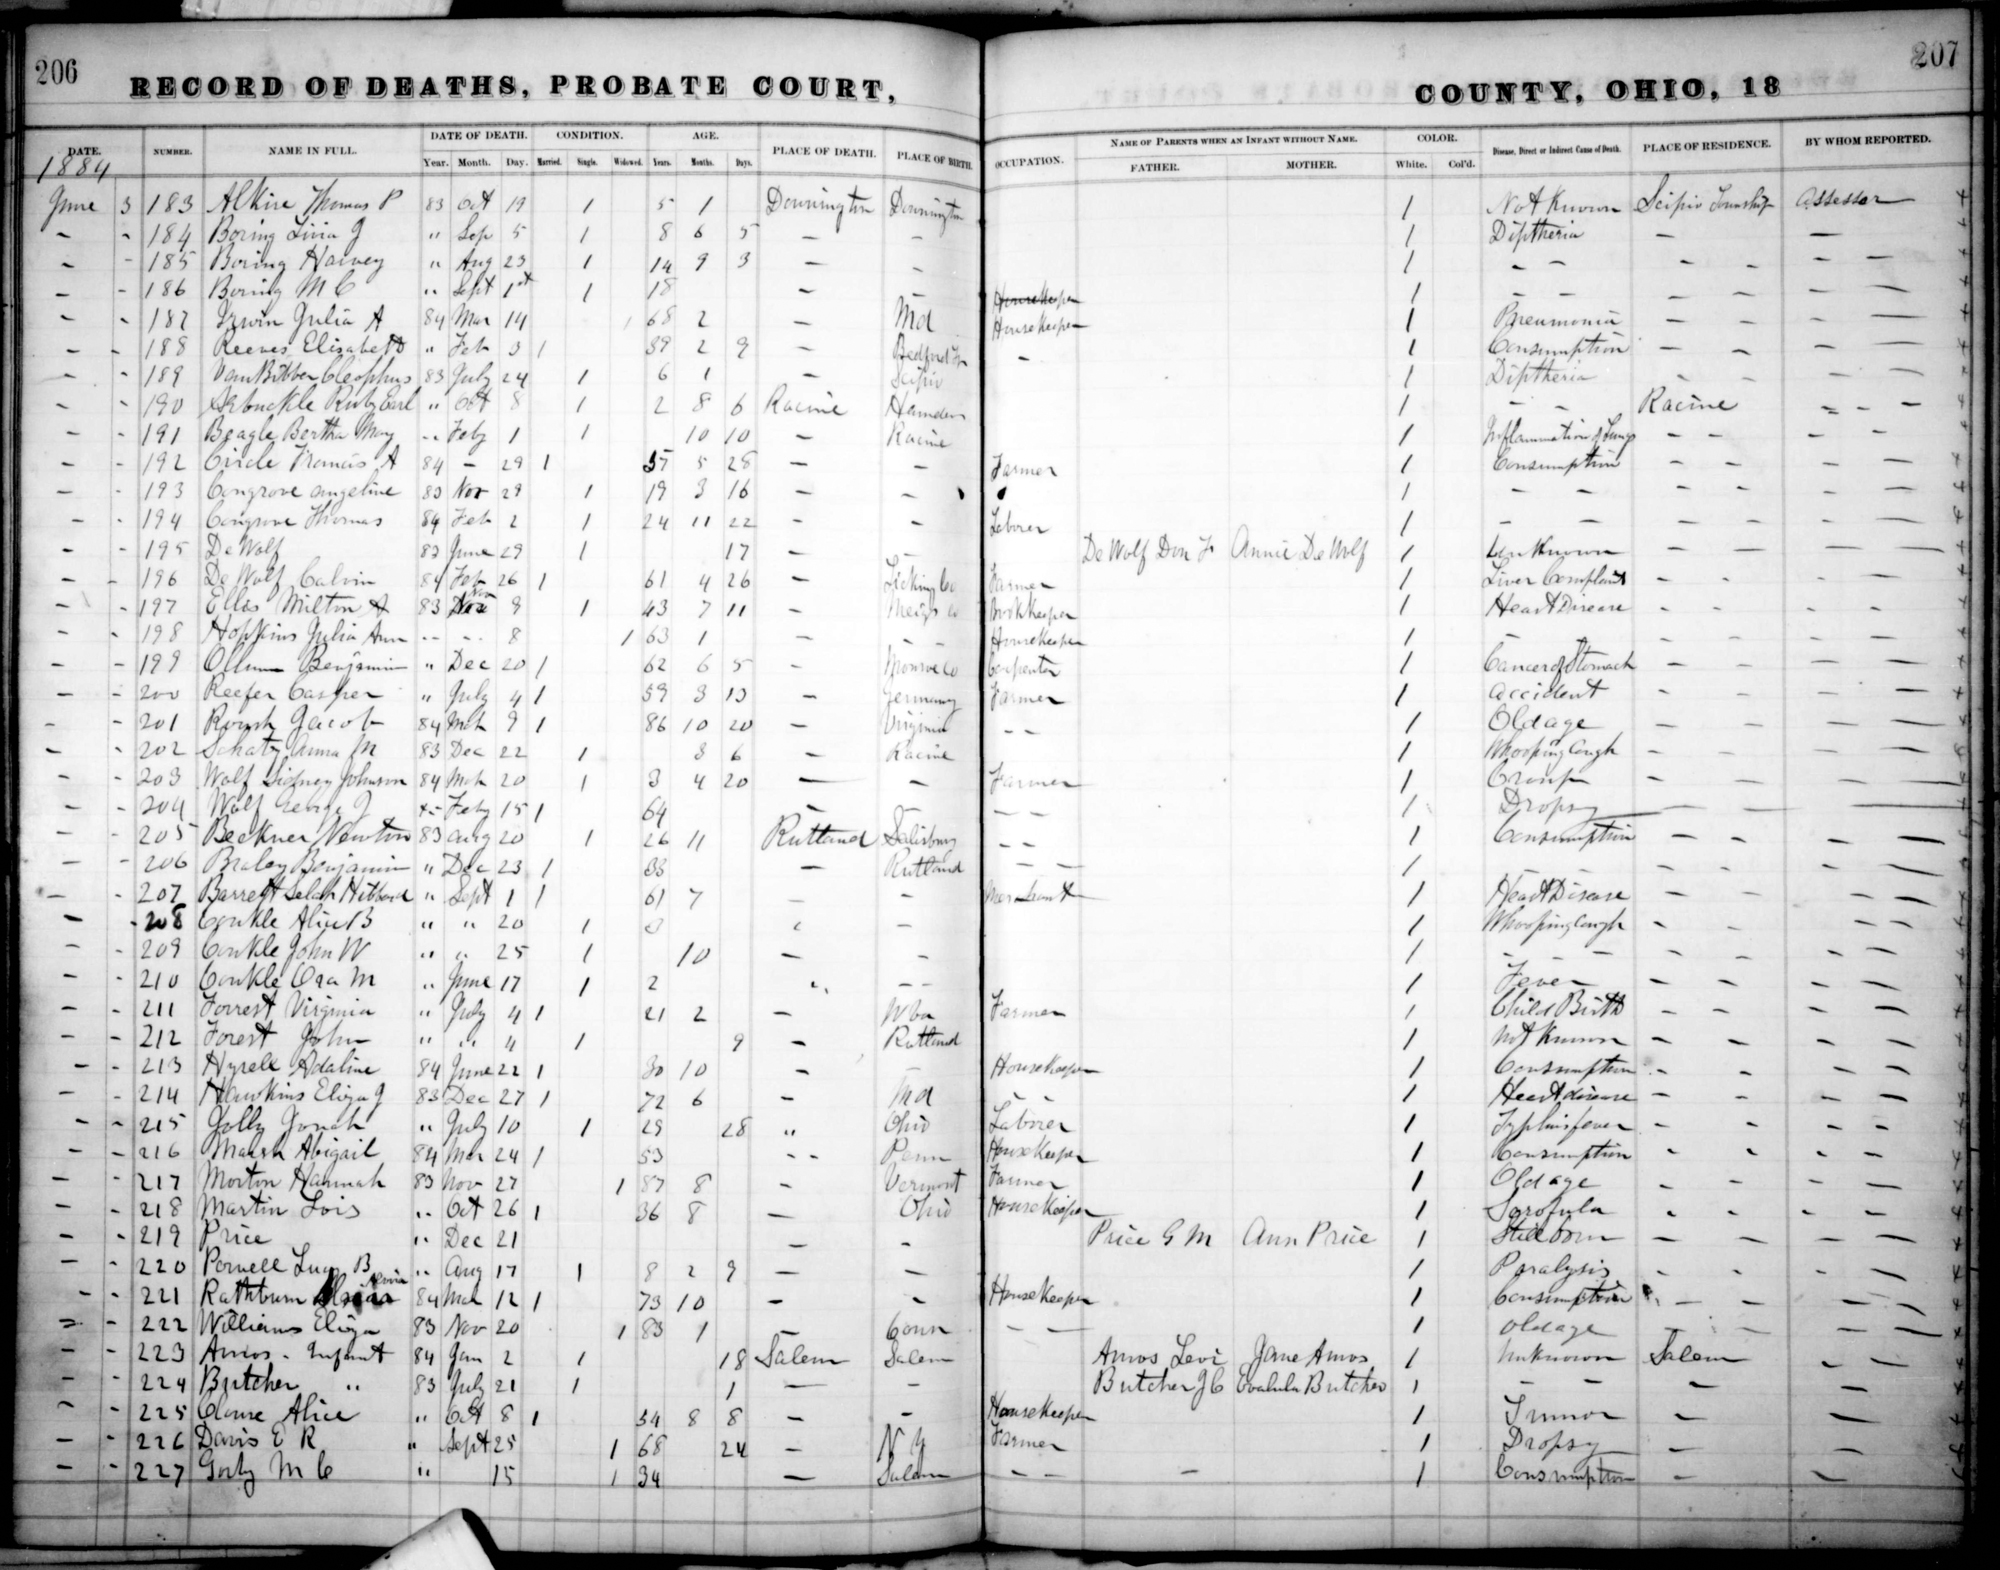 206
RECORD OF DEATHS, PROBATE COURT,
COUNTY, OHIO, 18
207
DATE. NUMBER. NAME IN FULL. DATE OF DEATH. Year. Month. Day. CONDITION. Married. Single. Widowed. AGE. Years. Months. Days. PLACE OF DEATH. PLACE OF BIRTH. OCCUPATION. NAME OF PARENTS WHEN AN INFANT WITHOUT NAME. FATHER. MOTHER. COLOR. White. Col'd. Disease, Direct or Indirect Cause of Death. PLACE OF RESIDENCE. BY WHOM REPORTED.
1884
June 3 183 Alkire Thomas P 83 Oct 19 1 5 1 Downington Downington 1 Not Known Scipio Township Assessor
" - 184 Boring Livia J " Sep 5 1 8 6 5 - - 1 Diptheria - -
- - 185 Boring Harvey " Aug 23 1 14 9 3 - - 1 - - - - - -
- - 186 Boring M C " Sept 1st 1 18 - - Housekeeper 1 - - - - - -
- - 187 Irwin Julia A 84 Mar 14 1 68 2 - Md Housekeeper 1 Pneumonia - - - -
- - 188 Reeves Elisabeth " Feb 3 1 39 2 9 - Bedford - 1 Consumption - - - -
- - 189 VanBibber Cleophus 83 July 24 1 6 1 - Scipio 1 Diptheria - - - -
- - 190 Arbuckle Ruby Earl " Oct 8 1 2 8 6 Racine Hamden 1 - - Racine - - -
- - 191 Beagle Bertha May " Feby 1 1 10 10 - Racine 1 Inflammation of Lungs - - - -
- - 192 Circle Francis A 84 - 29 1 37 5 28 - - Farmer 1 Consumption - - - -
- - 193 Congrove Angeline 83 Nov 29 1 19 3 16 - - 1 - - - - - -
- - 194 Congrove Thomas 84 Feb 2 1 24 11 22 - - Laborer 1 - - - - - -
- - 195 DeWolf 83 June 29 1 17 - - DeWolf Don F Annie DeWolf 1 Unknown - - - -
- - 196 DeWolf Calvin 84 Feb 26 1 61 4 26 - Licking Co Farmer 1 Liver Complaint - - - -
- - 197 Ellis Milton A 83 Nov 9 1 43 7 11 - Meigs Co Bookkeeper 1 Heart Disease - - - -
- - 198 Hopkins Julia Ann " " 8 1 63 1 - - - Housekeeper 1 - - - - -
- - 199 Ollum Benjamin " Dec 20 1 62 6 5 - Monroe Co Carpenter 1 Cancer of Stomach - - - -
- - 200 Reefer Casper " July 4 1 59 3 13 - Germany Farmer 1 Accident - - - -
- - 201 Roush Jacob 84 Mch 9 1 86 10 20 - Virginia - - 1 Old age - - - -
- - 202 Schatz Anna M 83 Dec 22 1 3 6 - Racine 1 Whooping Cough - - - -
- - 203 Wolf Sidney Johnson 84 Mch 20 1 3 4 20 - - Farmer 1 Croup - - - -
- - 204 Wolf George J " Feby 15 1 64 - - - - 1 Dropsy - - -
- - 205 Beckner Newton 83 Aug 20 1 26 11 Rutland Salisbury - - 1 Consumption - - - -
- - 206 Braley Benjamin " Dec 23 1 33 - Rutland - - 1 - - - - - -
- - 207 Barrett Selah Hibbard " Sept 1 1 61 7 - - Merchant 1 Heart Disease - - - -
- - 208 Conkle Alice B " " 20 1 3 - - 1 Whooping Cough - - - -
- - 209 Conkle John W " " 25 1 10 - - 1 - - - - - -
- - 210 Conkle Ora M " June 17 1 2 " - - 1 Fever - - - -
- - 211 Forrest Virginia " July 4 1 21 2 - W Va Farmer 1 Child Birth - - - -
- - 212 Forest John " " 4 1 9 - Rutland 1 Not Known - - - -
- - 213 Hysell Adaline 84 June 22 1 30 10 - Housekeeper 1 Consumption - - - -
- - 214 Hawkins Eliza J 83 Dec 27 1 72 6 - Md - - 1 Heart disease - - - -
- - 215 Jolly Jonah " July 10 1 29 28 " Ohio Laborer 1 Typhus fever - - - -
- - 216 Marsh Abigail 84 Mar 24 1 53 " Penn Housekeeper 1 Consumption - - - -
- - 217 Morton Hannah 83 Nov 27 1 87 8 - Vermont Farmer 1 Old age - - - -
- - 218 Martin Lois " Oct 26 1 36 8 - Ohio Housekeeper 1 Scrofula - - - -
- - 219 Price " Dec 21 - - Price G M Ann Price 1 Still born - - - -
- - 220 Powell Lucy B " Aug 17 1 8 2 9 - - 1 Paralysis - - - -
- - 221 Rathburn Alvira 84 Mch 12 1 73 10 - - Housekeeper 1 Consumption - - - -
- - 222 Williams Eliza 83 Nov 20 1 83 1 - Conn - - 1 Old age - - - -
- - 223 Amos - Infant 84 Jan 2 1 18 Salem Salem Amos Levi Jane Amos 1 Unknown Salem - -
- - 224 Butcher " 83 July 21 1 1 - - Butcher J C Evalula Butcher 1 - - - -
- - 225 Clouse Alice " Oct 8 1 34 8 8 - - Housekeeper 1 Tumor - -
- - 226 Davis E R " Sept 25 1 68 24 - N Y Farmer 1 Dropsy - -
- - 227 Gorby M C " 15 1 34 - Salem - - - 1 Consumption - -